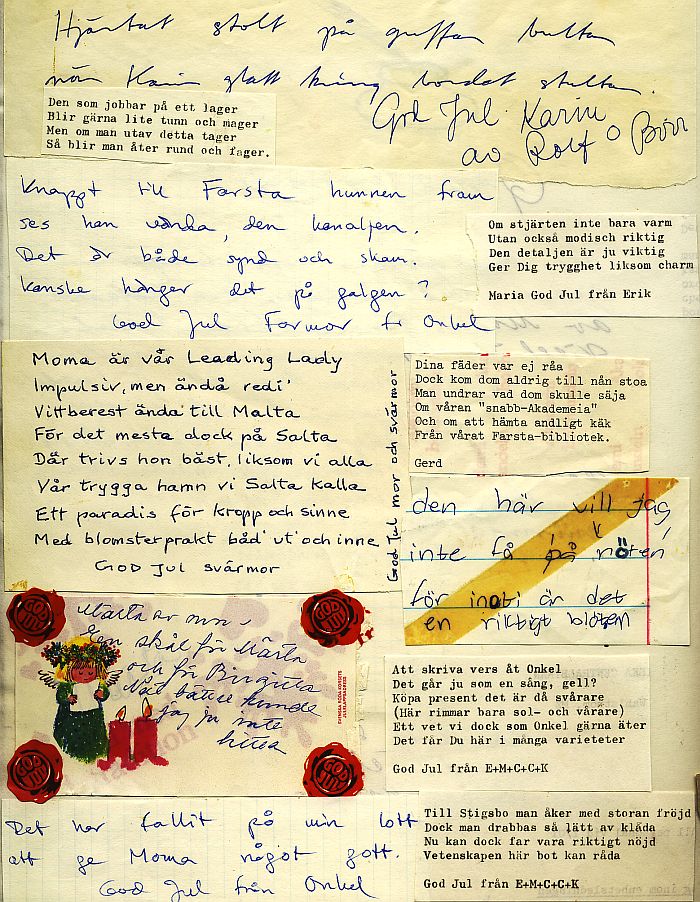 Hjärtat stolt på gubben bultar
när Karin glatt kring bordet
God Jul Karin
av Rolf o
Den som jobbar på ett lager
Blir gärna lite tunn och mager
Men om man utav detta tager
Så blir man åter rund och fager.
Knappt till Farsta hunnen fram
ses han vända, den kanaljen.
Det är både synd och skam.
Kanske hänger det på galgen?
God Jul Farmor fr Onkel
Om stjärten inte bara varm
Utan också modisch riktig
Den detaljen är ju viktig
Ger Dig trygghet liksom charm
Maria God Jul från Erik
Moma är vår Leading Lady
Impulsiv, men ändå redi'
Vittberest ända till Malta
För det mesta dock på Salta
Där trivs hon bäst, liksom vi alla
Vår trygga hamn vi Salta kalla
Ett paradis för kropp och sinne
Med blomsterprakt båd' ut' och inne
GOD JUL svärmor
God Jul mor och svärmor
Dina fäder var ej råa
Dock kom dom aldrig till nån stoa
Man undrar vad dom skulle säja
Om våran "snabb-Akademeia"
Och om att hämta andligt käk
Från vårat Farsta-bibliotek.
Gerd
den här vill jag
inte få på nöten
för inoti är det
en riktigt blöten
Märta av mor
En skål för Märta
och för Birgitta
Nåt bättre kunde
jag ju inte
hitta
GOD JUL
GOD JUL
GOD JUL
GOD JUL
Att skriva vers åt Onkel
Det går ju som en sång, gell?
Köpa present det är då svårare
(Här rimmar bara sol- och vårare)
Ett vet vi dock som Onkel gärna äter
Det får Du här i många varieteter
God Jul från E+M+C+C+K
Det har fallit på min lott
att ge Moma något gott.
God Jul från Onkel
Till Stigsbo man åker med storan fröjd
Dock man drabbas så lätt av klåda
Nu kan dock far vara riktigt nöjd
Vetenskapen här bot kan råda
God Jul från E+M+C+C+K